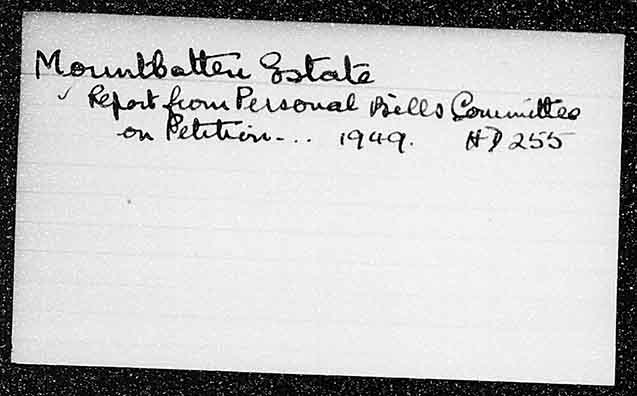 Mountbatten Estate
✓ Report from Personal Bills Committee
on Petition - .. 1949. HD 255